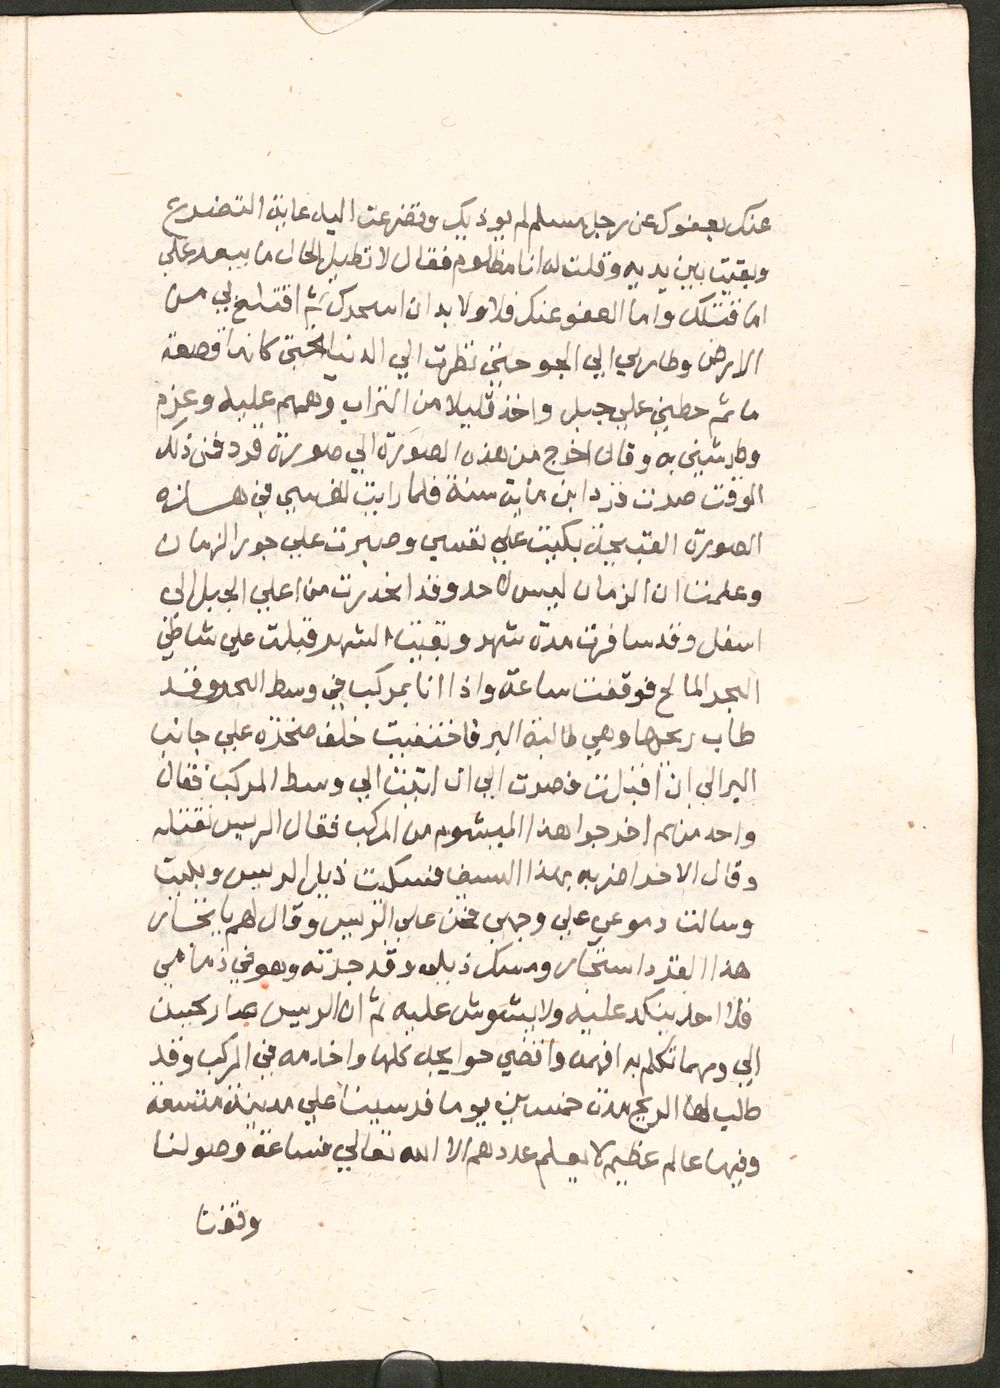 عنك بعفوك عن رجل مسلم لم يوذيك وتضرعت اليه غاية التضرع
وبقيت بين يديه وقلت له انا مظلوم فقال لا تطيل الحال ما يبعد علي
اما قتلك واما العفو عنك فلا ولا بد ان اسحرك ثم اقتلع بي من
الارض وطار بي الي الجو حتي نظرت الي الدنيا تحتي كانها قصعة
ما ثم حطني علي جبل واخذ قليلا من التراب وهمهم عليه وعزم
وطرشني به وقال اخرج من هذه الصورة الي صورة قرد فمن ذلك
الوقت صرت قرد ابن ماية سنة فلما رايت نفسي في هذه
الصورة القبيحة بكيت علي نفسي وصبرت علي جور الزمان
وعلمت ان الزمان ليس لاحد وقد انحدرت من اعلي الجبل الي
اسفل وقد سافرت مدة شهد وبقيت الشهر قبلت علي شاطي
البحر المالح فوقفت ساعة واذا انا بمركب في وسط البحر وقد
طاب ريحها وهي طالبة البر فاختفيت خلف صخرة علي جانب
البر الي ان اقبلت فصرت الي ان اتيت الي وسط المركب فقال
واحد منهم اخرجوا هذا الميشوم من المركب فقال الريس نقتله
وقال الاخر اضربه بهذا السيف فمسكت ذيل الريس وبكيت
وسالت دموعي علي وجهي فحن علي الريس وقال لهم يا تجار
هذا القرد استجار ومسك ذيلي وقد جرته وهو في ذمامي
فلا احد ينكد عليه ولا يشوش عليه ثم ان الريس صار يحسن
الي ومهما تكلم به افهمه واقضي حوايجه كلها واخدمه في المركب وقد
طاب لها الريح مدة خمسين يوما فرسينا علي مدينة متسعة
وفيها عالم عظيم لا يعلم عددهم الا الله تعالي فساعة وصولنا
وقفت